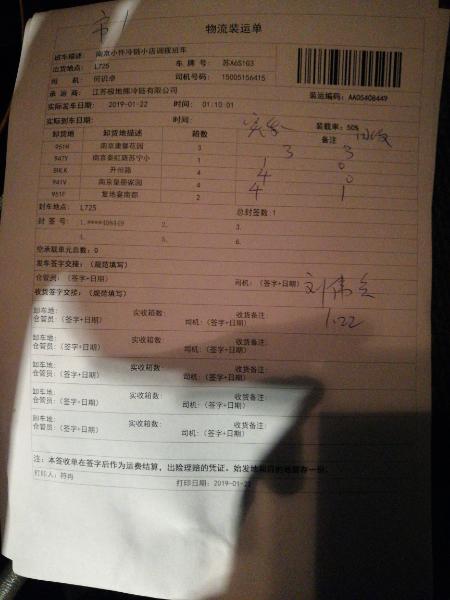 物流装运单
班车描述: 南京小件冷链小店调拨班车
出货地点: L725 车 牌 号: 苏A6S1G3
司 机: 何识卓 司机号码: 15005156415
承 运 商: 江苏极地熊冷链有限公司 装运编码: AA05408449
实际发车日期: 2019-01-22 时间: 01:10:01
实际到车日期: 时间: 装载率: 50%
卸货地 卸货地描述 箱数 备注 回收
951H 南京康馨花园 3 3 3
947Y 南京秦虹路苏宁小 1 1 0
升州路 4 4 0
941V 南京皇册家园 4 4 1
951F 复地宴南都 2
封车地点: L725 总封签数: 1
封 签 号: 1.****408449 2. 3.
4. 5. 6.
空承载单元总数: 0
发车签字交接: (规范填写)
仓管员: (签字+日期) 司机: (签字+日期) 刘伟
收货签字交接: (规范填写) 1.22
卸车地: 实收箱数: 收货备注:
仓管员: (签字+日期) 司机: (签字+日期)
卸车地: 实收箱数: 收货备注:
仓管员: (签字+日期) 司机: (签字+日期)
卸车地: 实收箱数: 收货备注:
仓管员: (签字+日期) 司机: (签字+日期)
卸车地: 实收箱数: 收货备注:
仓管员: (签字+日期) 司机: (签字+日期)
卸车地: 实收箱数: 收货备注:
仓管员: (签字+日期) 司机: (签字+日期)
注: 本签收单在签字后作为运费结算, 出险理赔的凭证。始发地和目的地留存一份。
打印人: 符肖 打印日期: 2019-01-22